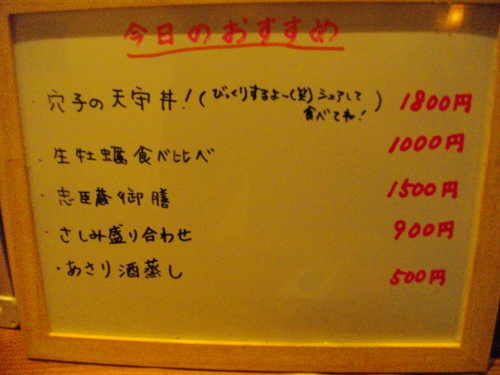 今日のおすすめ
・穴子の天守丼！(びっくりするよ〜(笑)シェアして食べてね！) 1800円
・生牡蠣食べ比べ 1000円
・忠臣蔵御膳 1500円
・さしみ盛り合わせ 900円
・あさり酒蒸し 500円